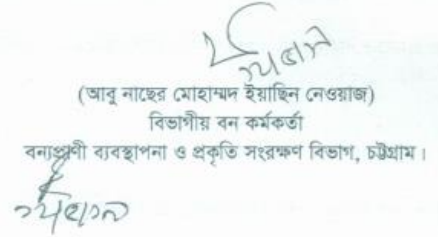 (আবু নাছের মোহাম্মদ ইয়াছিন নেওয়াজ)
বিভাগীয় বন কর্মকর্তা
বন্যপ্রাণী ব্যবস্থাপনা ও প্রকৃতি সংরক্ষণ বিভাগ, চট্টগ্রাম।